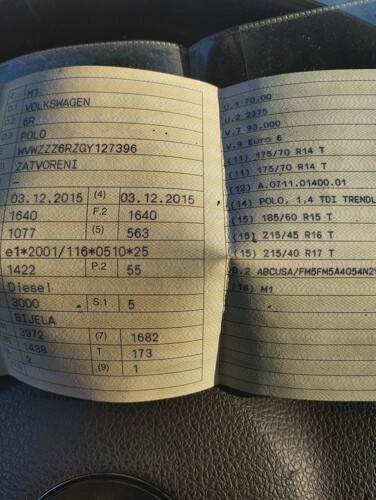 M1
D.1 VOLKSWAGEN
6R
D.3 POLO
WVWZZZ6RZGY127396
ZATVORENI
-
03.12.2015 (4) 03.12.2015
1640 F.2 1640
1077 (5) 563
e1*2001/116*0510*25
1422 P.2 55
Diesel
3000 S.1 5
BIJELA
3972 (7) 1682
1438 T 173
2 (9) 1
U.1 70.00
U.2 2375
V.7 93.000
V.9 Euro 6
(11) 175/70 R14 T
(11) 175/70 R14 T
(12) A.0711.01400.01
(14) POLO, 1,4 TDI TRENDL
(15) 185/60 R15 T
(15) 215/45 R16 T
(15) 215/40 R17 T
D.2 ABCUSA/FM5FM5A4054N2
(16) M1